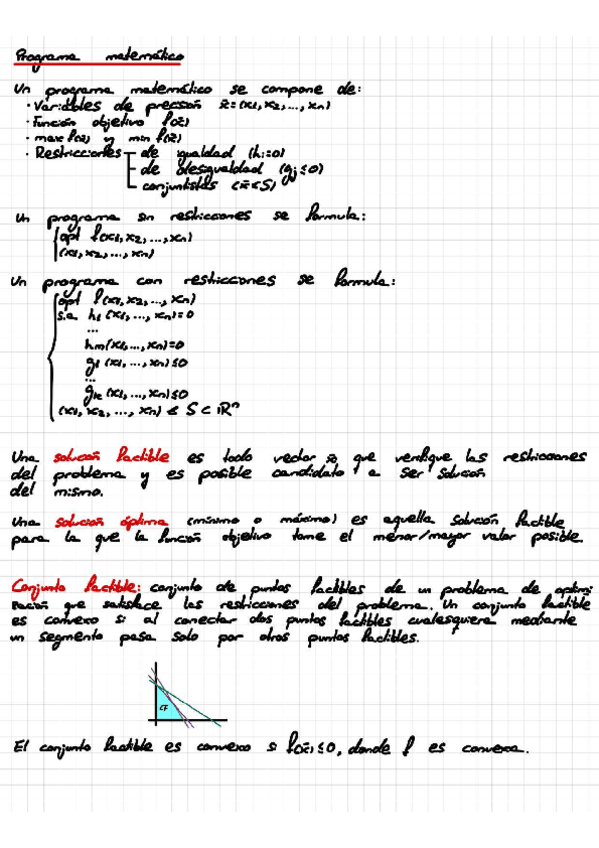 Programa matemático
Un programa matemático se compone de:
· Variables de precisión x̄=(x1, x2, ..., xn)
· Función objetivo f(x̄)
· max f(x̄) y min f(x̄)
· Restricciones de igualdad (hi=0)
de desigualdad (gj≤0)
conjuntistas (x̄∈S)
Un programa sin restricciones se formula:
opt f(x1, x2, ..., xn)
(x1, x2, ..., xn)
Un programa con restricciones se formula:
opt f(x1, x2, ..., xn)
s.a h1(x1, ..., xn)=0
...
hm(x1, ..., xn)=0
g1(x1, ..., xn)≤0
...
gk(x1, ..., xn)≤0
(x1, x2, ..., xn) ∈ S ⊂ ℝⁿ
Una solución factible es todo vector x̄ que verifique las restricciones
del problema y es posible candidato a ser solución
del mismo.
Una solución óptima (mínimo o máximo) es aquella solución factible
para la que la función objetivo tome el menor/mayor valor posible.
Conjunto factible: conjunto de puntos factibles de un problema de optimi
zación que satisface las restricciones del problema. Un conjunto factible
es convexo si al conectar dos puntos factibles cualesquiera mediante
un segmento pasa solo por otros puntos factibles.
CF
El conjunto factible es convexo si f(x̄)≤0, donde f es convexa.